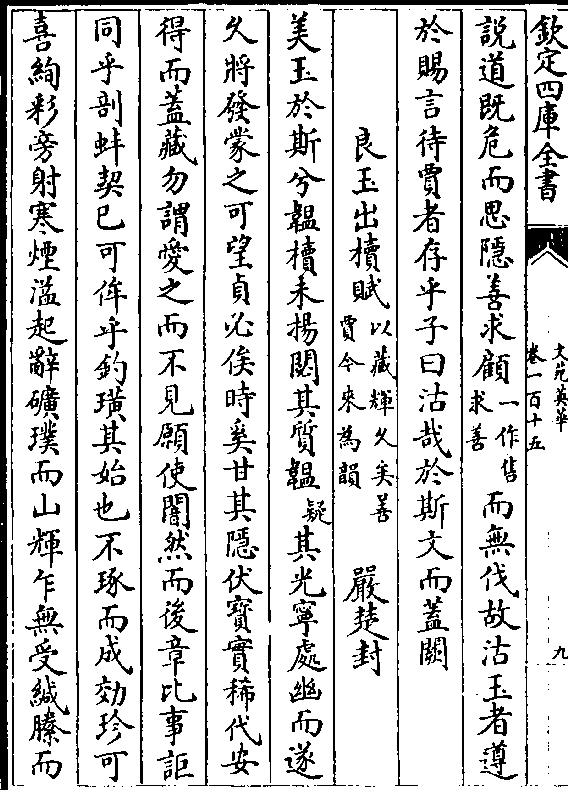 欽定四庫全書
文苑英華
卷一百十五
九
說道既危而思隱善求顧一作售求善而無伐故沽玉者遵
於賜言待賈者存乎子曰沽哉於斯文而蓋闕
良玉出櫝賦以藏輝久矣善賈今來為韻 嚴楚封
美玉於斯兮韞櫝未揚閟其質韞疑其光寧處幽而遂
久將發蒙之可望貞必俟時奚甘其隱伏寶實稀代安
得而蓋藏勿謂愛之而不見願使闇然而後章比事詎
同乎剖蚌契已可侔乎釣璜其始也不琢而成効珍可
喜絢彩旁射寒煙溢起辭礦璞而山輝乍無受緘縢而